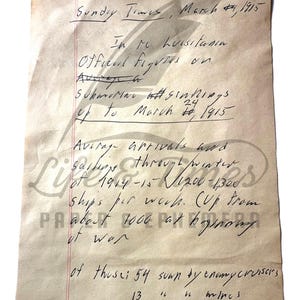 Sunday Times, March 1915
In re Lusitania
Official figures on
submarine sinkings
up to March 24, 1915
Average arrivals and
sailings through winter
of 1914-15 : 1200-1300
ships per week. (Up from
about 1000 at beginning
of war
of these: 54 sunk by enemy cruisers
13 " " mines
Life & Times
PAPER & EPHEMERA